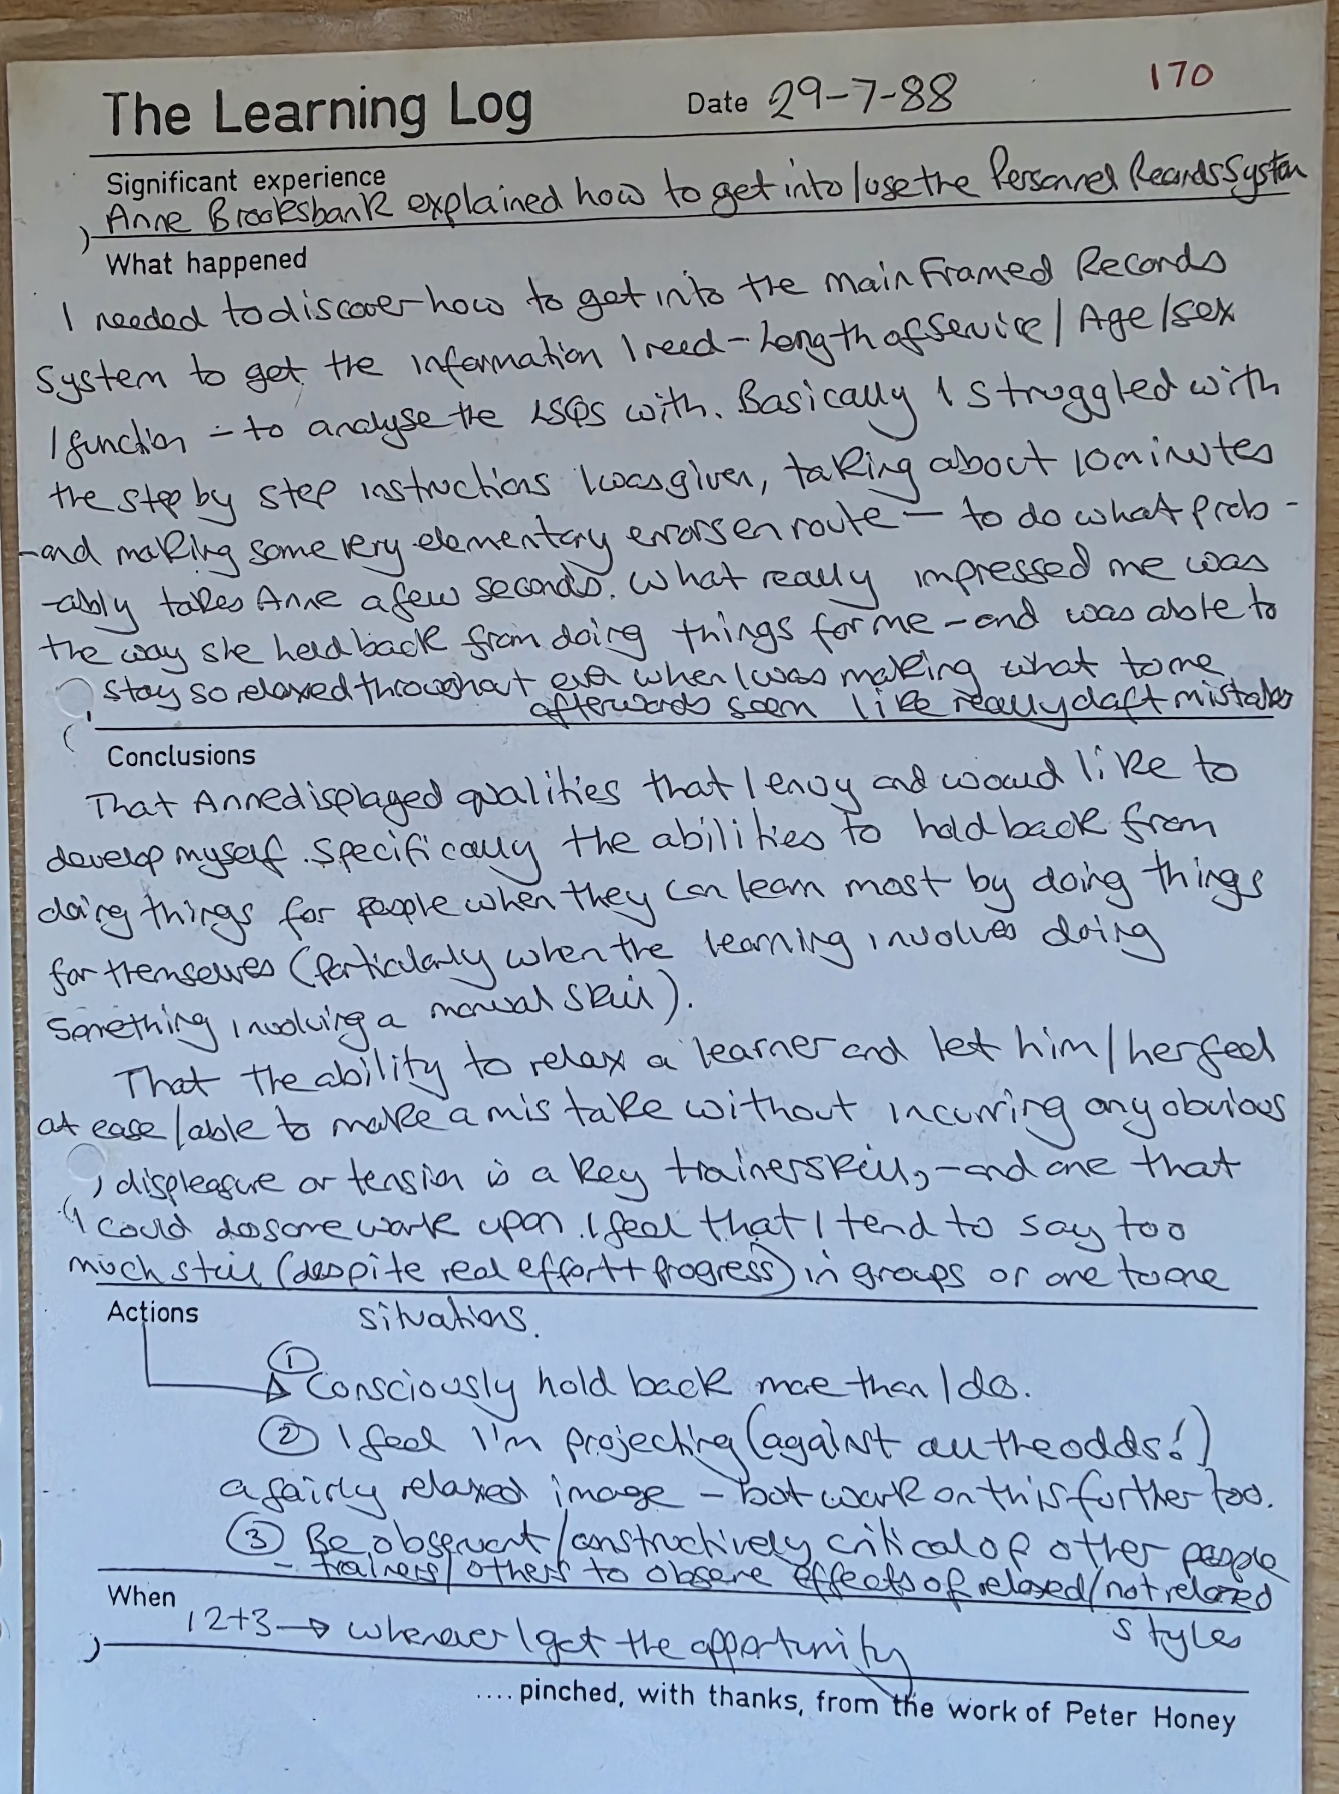 170
The Learning Log Date 29-7-88
Significant experience
Anne Brooksbank explained how to get into/use the Personnel Records System
What happened
I needed to discover how to get into the mainframed Records
System to get the information I need - Length of Service / Age / sex
/ function - to analyse the LSQs with. Basically I struggled with
the step by step instructions I was given, taking about 10 minutes
-and making some very elementary errors en route - to do what prob-
-ably takes Anne a few seconds. What really impressed me was
the way she held back from doing things for me - and was able to
stay so relaxed throughout even when I was making what to me
afterwards seem like really daft mistakes
Conclusions
That Anne displayed qualities that I envy and would like to
develop myself. Specifically the abilities to hold back from
doing things for people when they can learn most by doing things
for themselves (particularly when the learning involves doing
something involving a manual skill).
That the ability to relax a learner and let him/her feel
at ease/able to make a mistake without incurring any obvious
displeasure or tension is a key trainer skill, - and one that
I could do some work upon. I feel that I tend to say too
much still (despite real effort + progress) in groups or one to one
situations.
Actions
① Consciously hold back more than I do.
② I feel I'm projecting (against all the odds!)
a fairly relaxed image - but work on this further too.
③ Be observant/constructively critical of other people
- trainers/others to observe effects of relaxed/not relaxed
style
When
1 2+3 → whenever I get the opportunity
.... pinched, with thanks, from the work of Peter Honey